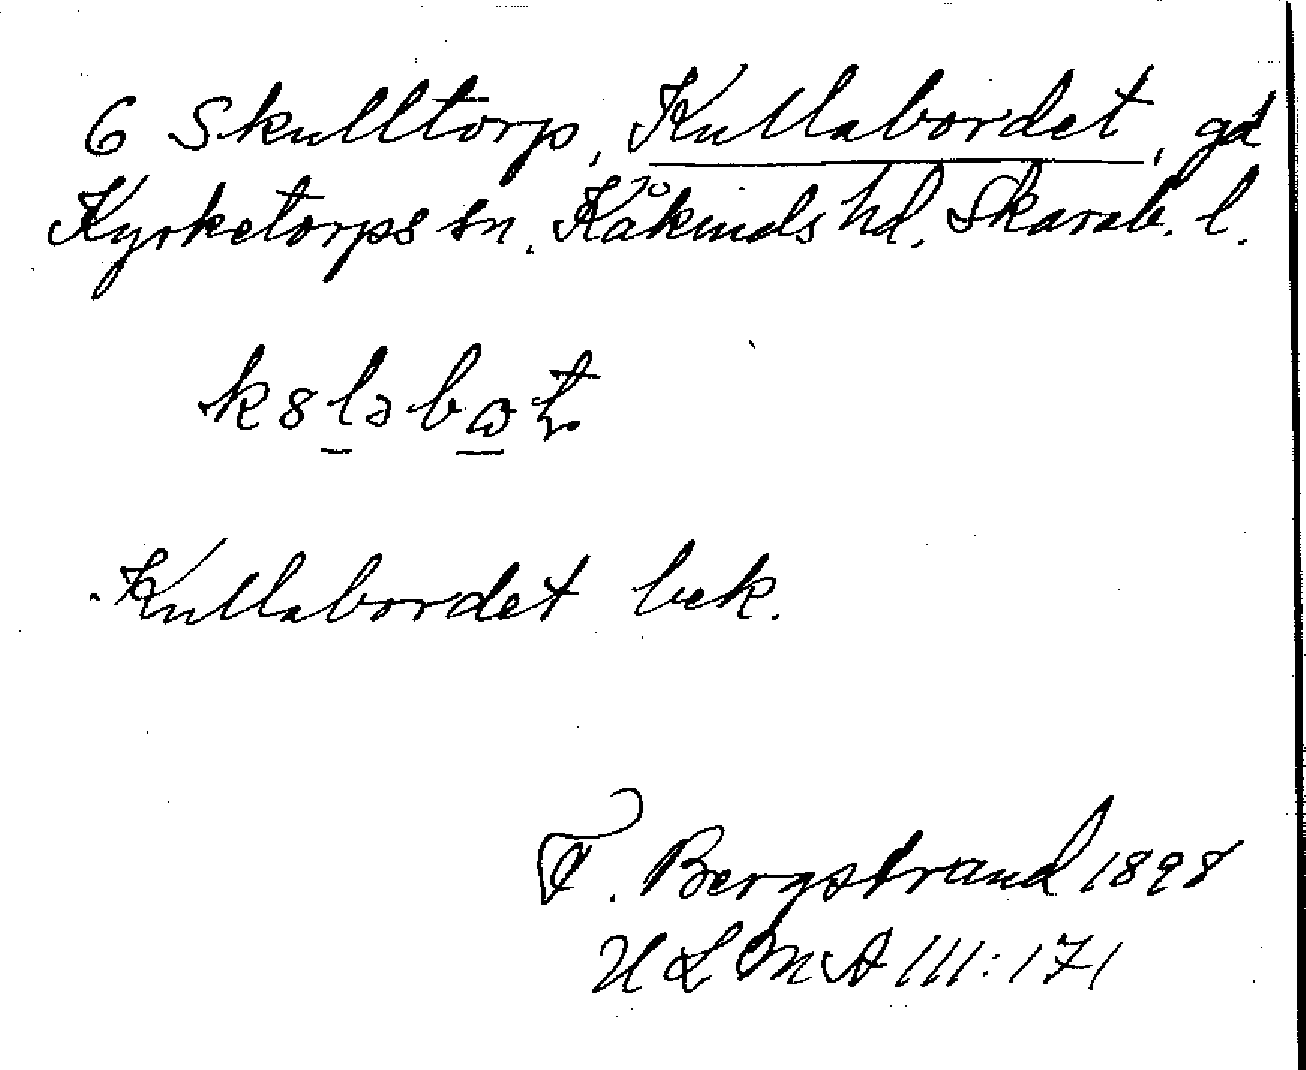 6 Skulltorp, Kullabordet, gd
Kyrketorps sn. Kåkinds hd. Skarab. l.
k8ləbɷt
Kullabordet bek.
F. Bergstrand 1898
ULMA 111:171